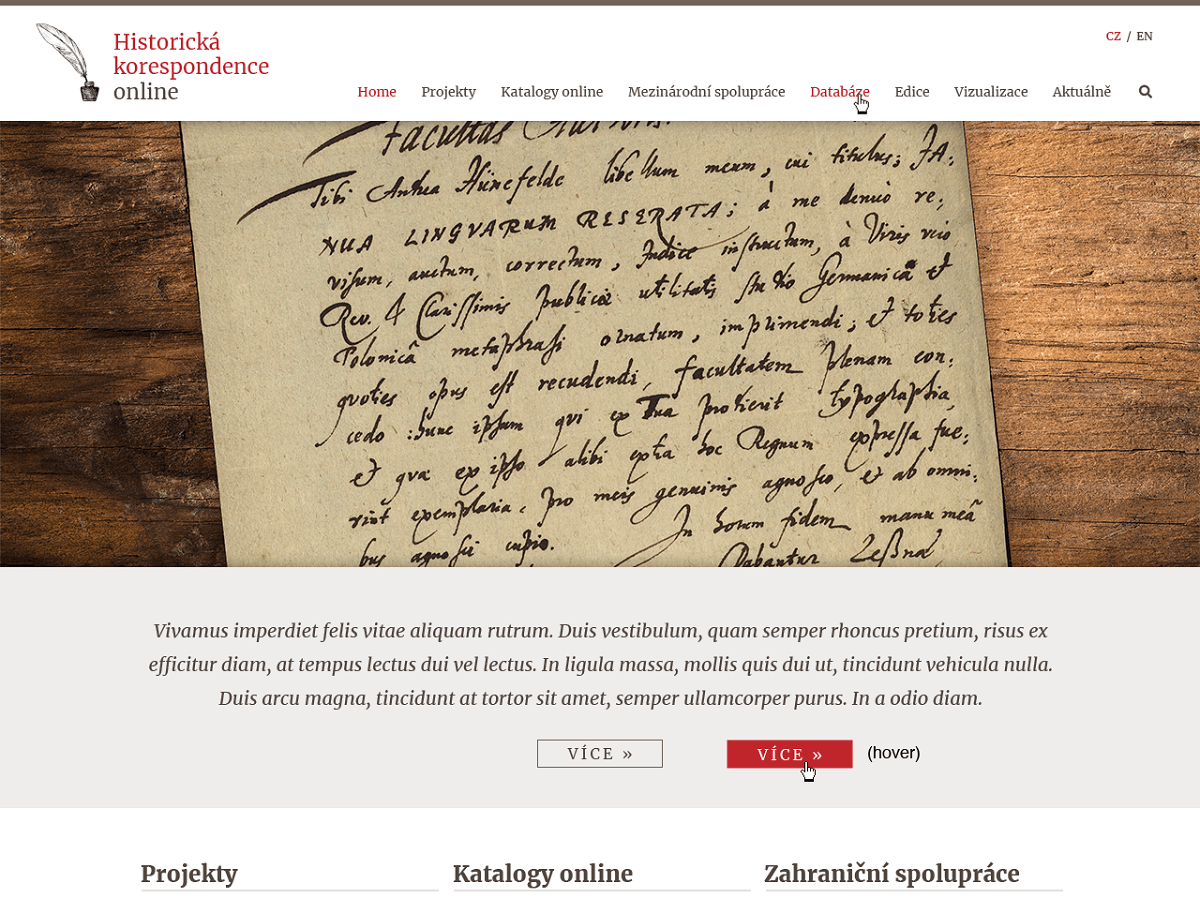 Historická
korespondence
online
CZ / EN
Home Projekty Katalogy online Mezinárodní spolupráce Databáze Edice Vizualizace Aktuálně
Facultas
Tibi Andrea Hünefelde libellum meum, cui titulus; JA:
NUA LINGVARUM RESERATA; à me denuò re:
visum, auctum, correctum, Indice instructum, à Viris
Rev. & Clarissimis publicæ utilitatis studio Germanicâ et
Polonicâ metaphrasi ornatum, imprimendi; et toties
quoties opus est recudendi, facultatem plenam con:
cedo :hunc ipsum qui ex Tua prodierit typographia,
et qvæ ex ipso alibi extra hoc Regnum expressa fue:
rint exemplaria, pro meis genuinis agnosco, et ab omni:
bus agnosci cupio. In horum fidem manu meâ
Dabantur Leßnæ
Vivamus imperdiet felis vitae aliquam rutrum. Duis vestibulum, quam semper rhoncus pretium, risus ex
efficitur diam, at tempus lectus dui vel lectus. In ligula massa, mollis quis dui ut, tincidunt vehicula nulla.
Duis arcu magna, tincidunt at tortor sit amet, semper ullamcorper purus. In a odio diam.
VÍCE » VÍCE » (hover)
Projekty Katalogy online Zahraniční spolupráce